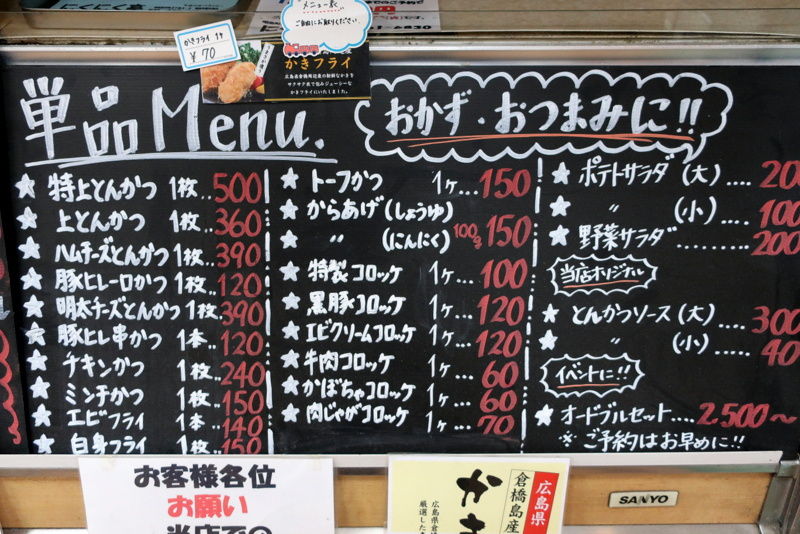 メニュー表
ご自由にお取りください。
かきフライ 1ケ
¥70
かきフライ
かきフライにいたしました。
単品Menu.
おかず・おつまみに!!
★ 特上とんかつ 1枚..500
★ 上とんかつ 1枚..360
★ ハムチーズとんかつ 1枚..390
★ 豚ヒレ一口かつ 1枚..120
★ 明太チーズとんかつ 1枚..390
★ 豚ヒレ串かつ 1本..120
★ チキンかつ 1枚...240
★ ミンチかつ 1枚...150
★ エビフライ 1本...140
★ 白身フライ 1枚...150
★ トーフかつ 1ヶ...150
★ からあげ(しょうゆ)
★ 〃 (にんにく) 100g 150
★ 特製コロッケ 1ヶ...100
★ 黒豚コロッケ 1ヶ...120
★ エビクリームコロッケ 1ヶ...120
★ 牛肉コロッケ 1ヶ...60
★ かぼちゃコロッケ 1ヶ...60
★ 肉じゃがコロッケ 1ヶ...70
★ ポテトサラダ (大)....200
★ 〃 (小)....100
★ 野菜サラダ.........200
当店オリジナル
★ とんかつソース (大)....300
〃 (小)....40
イベントに!!
★ オードブルセット....2,500〜
※ご予約はお早めに!!
お客様各位
お願い
当店での
広島県
倉橋島産
かき
SANYO